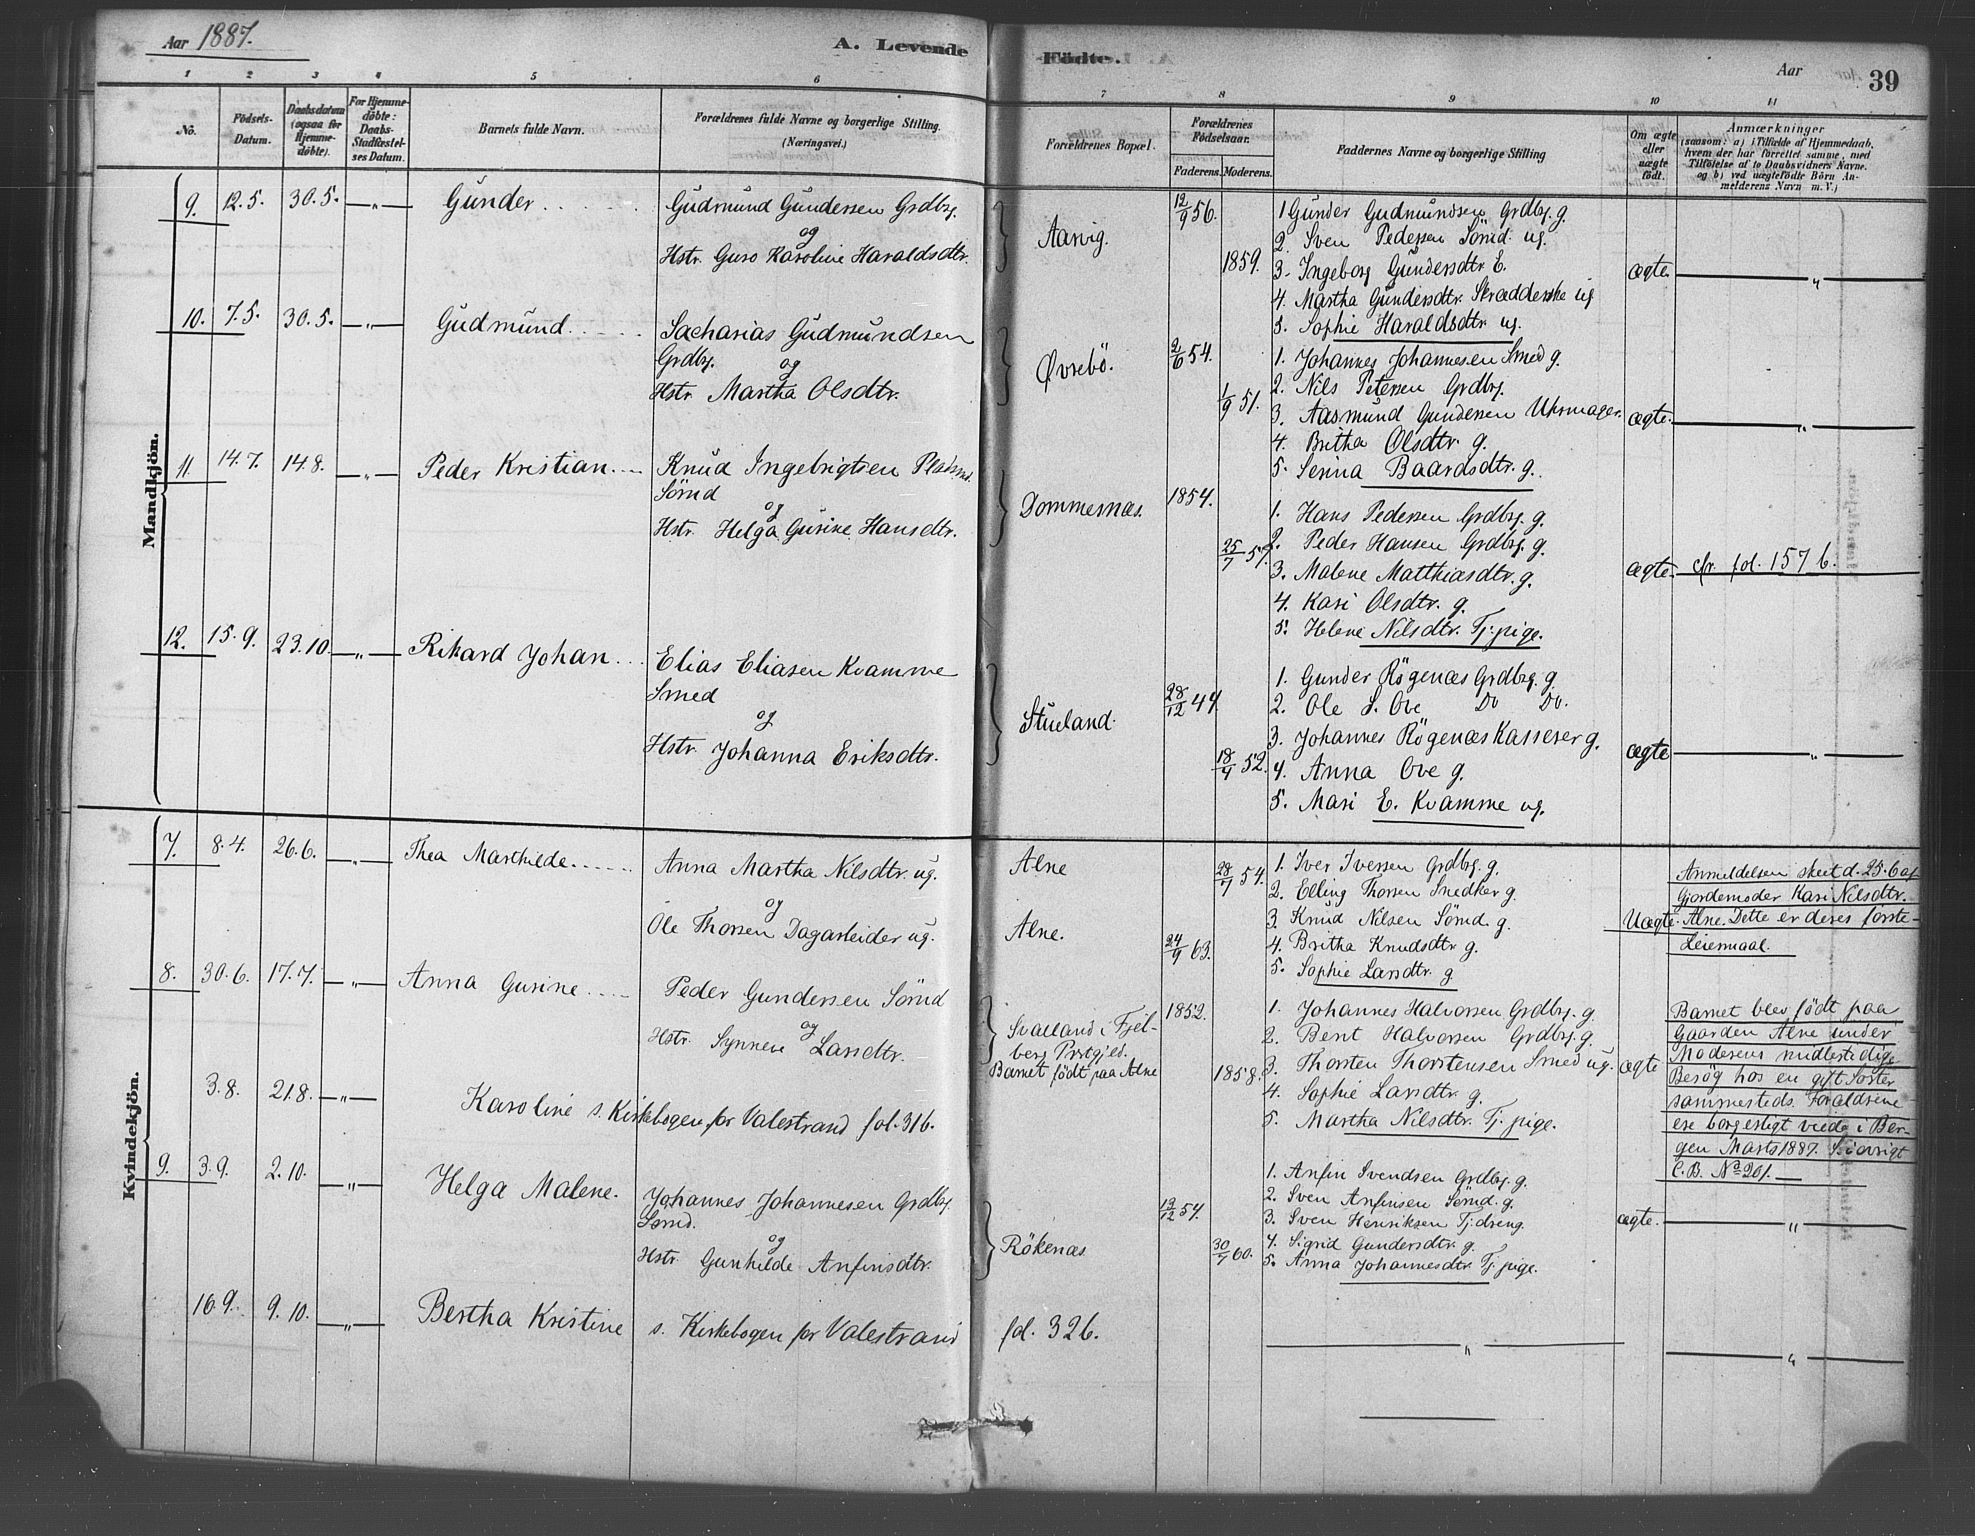 Aar 1887.
A. Levende
Födte.
Aar
39
1 2 3 4 5 6 7 8 9 10 11
No.
Födsels-
Datum.
Daabsdatum
(ogsaa for
Hjemme-
döbte).
For Hjemme-
döbte:
Daabs-
Stadfæstel-
ses Datum.
Barnets fulde Navn.
Forældrenes fulde Navne og borgerlige Stilling.
(Næringsvei.)
Forældrenes Bopæl.
Forældrenes
Födselsaar.
Faderens. Moderens.
Faddernes Navne og borgerlige Stilling
Om ægte
eller
uægte
födt.
Anmærkninger
(saasom: a) i Tilfælde af Hjemmedaab,
hvem der har forrettet samme, med
Tilföielse af to Daabsvidners Navne.
og b) ved uægtefödte Börn An-
melderens Navn m. V.)
Mandkjön.
9. 12.5. 30.5. — „ — Gunder
Gudmund Gundersen Grdbr.
og
Hstr. Guro Karoline Haraldsdtr.
Aarvig.
12/9 56.
1859.
1 Gunder Gudmundsen Grdbr. g.
2. Sven Pedersen Sömd. ug.
3. Ingeborg Gundersdtr. E.
4. Martha Gundersdtr. Skrædderske ug
5. Sophie Haraldsdtr. ug.
ægte. — „ —
10. 7.5. 30.5. — „ — Gudmund
Sacharias Gudmundsen
Grdbr. og
Hstr. Martha Olsdtr.
Øvrebö.
2/6 54.
1/9 51.
1. Johannes Johannesen Smed g.
2. Nils Petersen Grdbr.
3. Aasmund Gundersen Uhrmager.
4. Britha Olsdtr. g.
5. Serina Baardsdtr. g.
ægte. — „ —
11. 14.7. 14.8. — „ — Peder Kristian
Knud Ingebrigtsen Pladsmd.
Sömd
og
Hstr. Helga Gurine Hansdtr.
Dommersnæs.
1854.
25/7 57.
1. Hans Pedersen Grdbr. g.
2. Peder Hansen Grdbr. g.
3. Malene Matthiasdtr. g.
4. Kari Olsdtr. g.
5. Helene Nilsdtr. Tj. pige.
ægte. cfr. fol. 157 b.
12. 15.9. 23.10. — „ — Rikard Johan
Elias Eliasen Kvamme
Smed
og
Hstr. Johanna Eriksdtr.
Stueland.
28/12 44
18/4 52.
1. Gunder Rögenæs Grdbr. g
2. Ole S. Ove Do Do.
3. Johannes Rögenæs Kasserer g.
4. Anna Ove g.
5. Mari E. Kvamme ug.
ægte — „ —
Kvindekjön.
7. 8.4. 26.6. — „ — Thea Marthilde
Anna Martha Nilsdtr. ug.
og
Ole Thorsen Dagarbeider ug.
Alne
Alne.
28/7 54.
24/9 63.
1. Iver Iversen Grdbr. g.
2. Elling Thorsen Snedker g.
3. Knud Nilsen Sömd. g.
4. Britha Knudsdtr g.
5. Sophie Larsdtr. g
Uægte.
Anmeldelsen skeet d. 25.6 af
Gjordemoder Kari Nilsdtr.
Alne. Dette er deres förste-
Leiermaal.
8. 30.6. 17.7. — „ — Anna Gurine
Peder Gundersen Sömd
og
Hstr. Synneve Larsdtr.
Svalland i Fjel-
berg Prstgjed.
Barnet födt paa Alne
1852.
1858.
1. Johannes Halvorsen Grdbr. g.
2. Bent Halvorsen Grdbr. g.
3. Thorsten Thorstensen Smed ug.
4. Sophie Larsdtr. g.
5. Martha Nilsdtr. Tj. pige.
ægte
Barnet blev födt paa
Gaarden Alne under
Moderens midlertidige
Besög hos en gift Söster
sammesteds. Forældrene
ere borgerligt viede i Ber-
gen Marts 1887. S. iövrigt
C.B. No 201. —
3.8. 21.8. — „ — Karoline s. Kirkebogen for Valestrand fol. 316.
9. 3.9. 2.10. — „ — Helga Malene.
Johannes Johannesen Grdbr.
Sömd.
og
Hstr. Gunhilde Anfinsdtr.
Rökenæs
13/12 57.
30/7 60.
1. Anfin Svendsen Grdbr. g.
2. Sven Anfinsen Sömd. g.
3. Sven Henriksen Tj. dreng.
4. Sigrid Gundersdtr. g.
5. Anna Johannesdtr. Tj. pige.
ægte. — „ —
16.9. 9.10. — „ — Bertha Kristine s. Kirkebogen for Valestrand fol. 326. — „ — — „ —